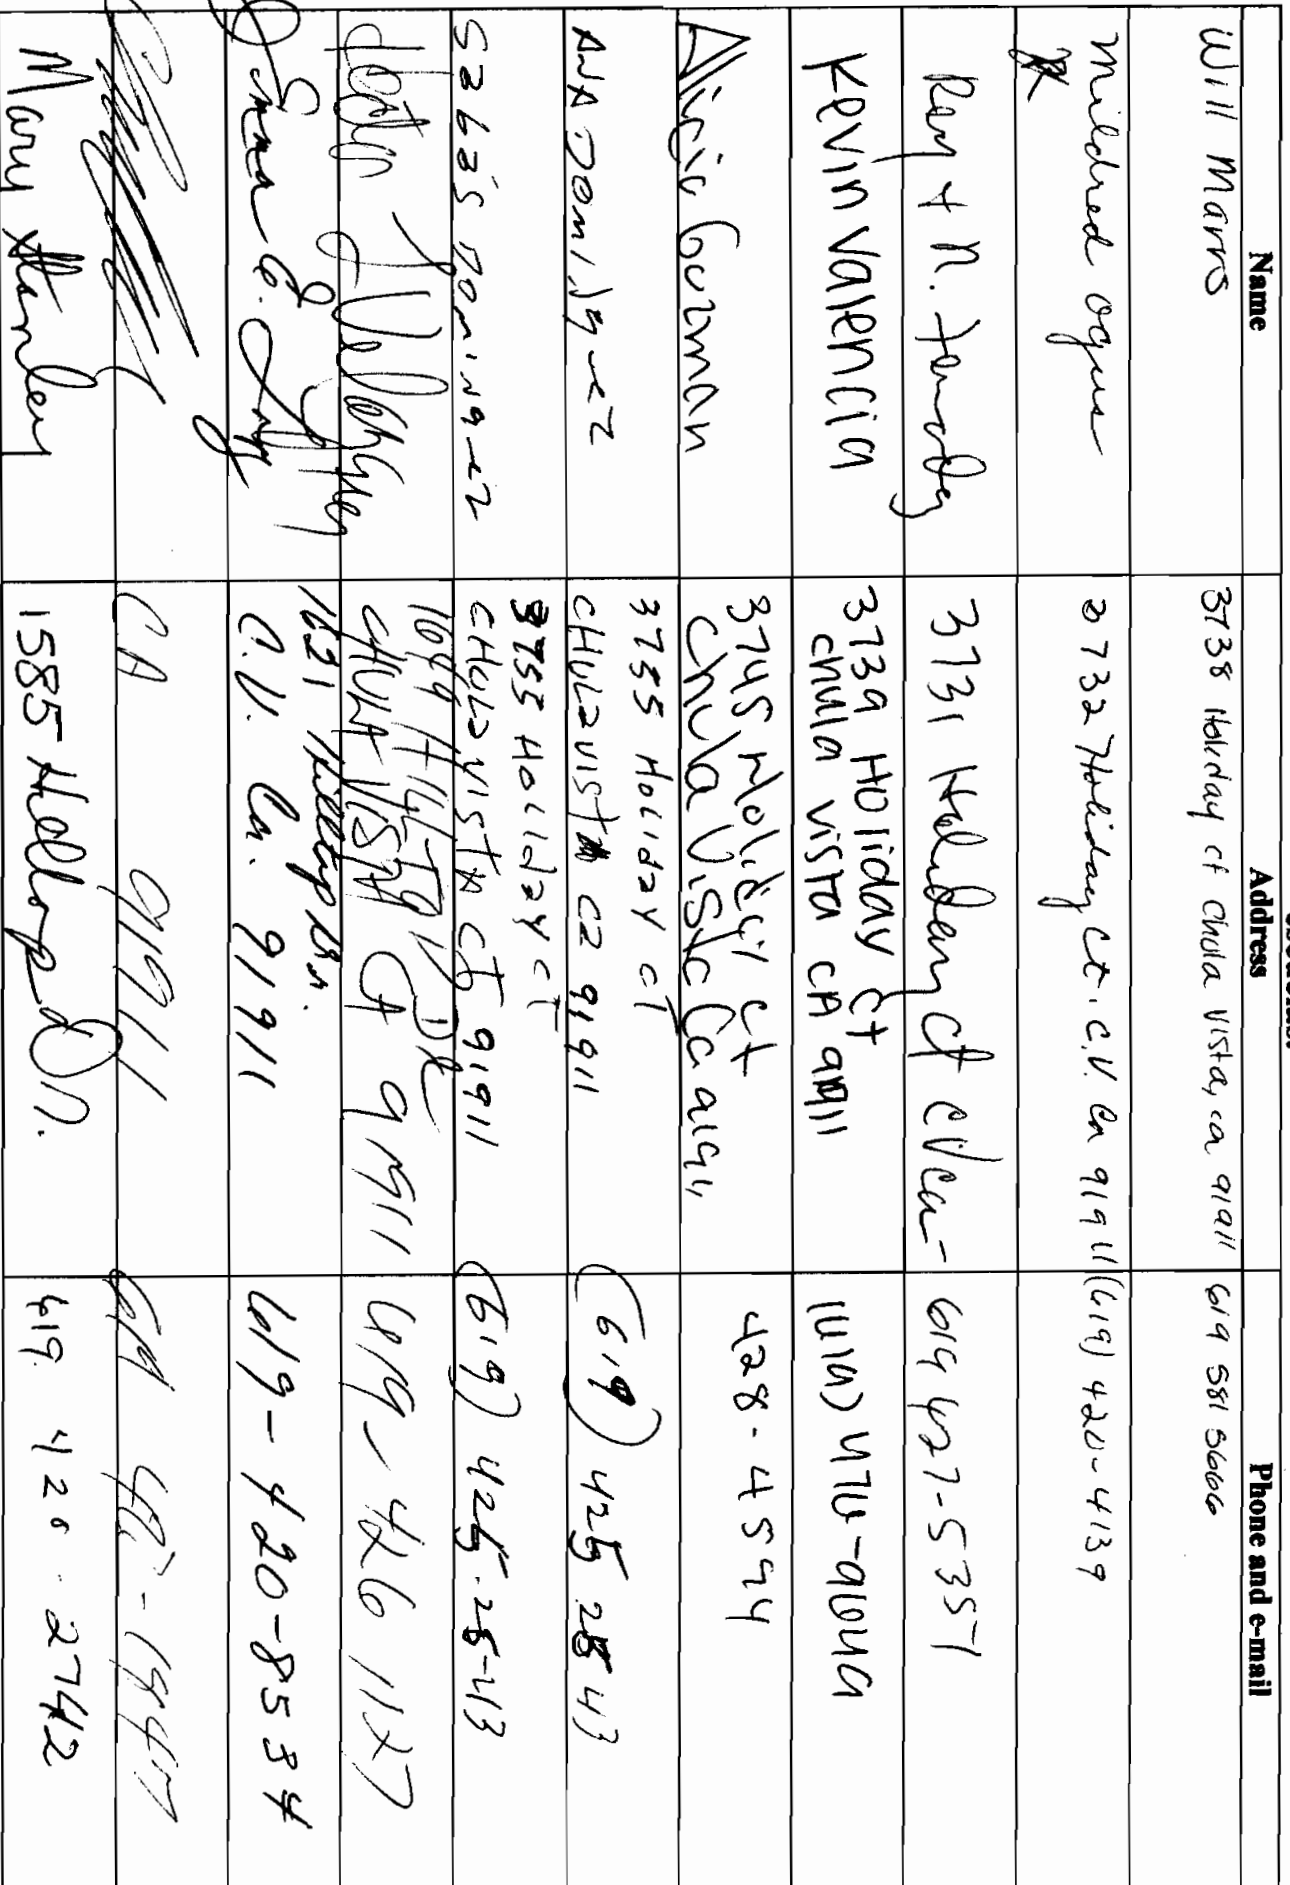 Name Address Phone and e-mail
Will Marrs 3738 Holiday ct Chula Vista, ca 91911 619 581 5666
Mildred Ogus 3732 Holiday Ct. C.V. Ca 91911 (619) 420-4139
Ray & N. 3731 Holiday Ct CV Ca- 619 427-5357
Kevin Valencia 3739 Holiday Ct
Chula Vista CA 91911 (619)
Alicia Guzman 3745 Holiday Ct
Chula Vista Ca 91911 428-4594
ANA Dominguez 3755 Holiday CT
CHULa VISTA Ca 91911 (619) 425 2843
Dominguez 3755 Holiday CT
CHULa VISTA 91911 (619) 425-28-43
1649 HILLTOP DR
CHULA VISTA CA 91911 619-426 1127
1621 Hilltop Dr.
C.V. Ca. 91911 619-420-8534
CA 91911 619
Mary Stanley 1585 Hilltop Dr. 619. 420-2742